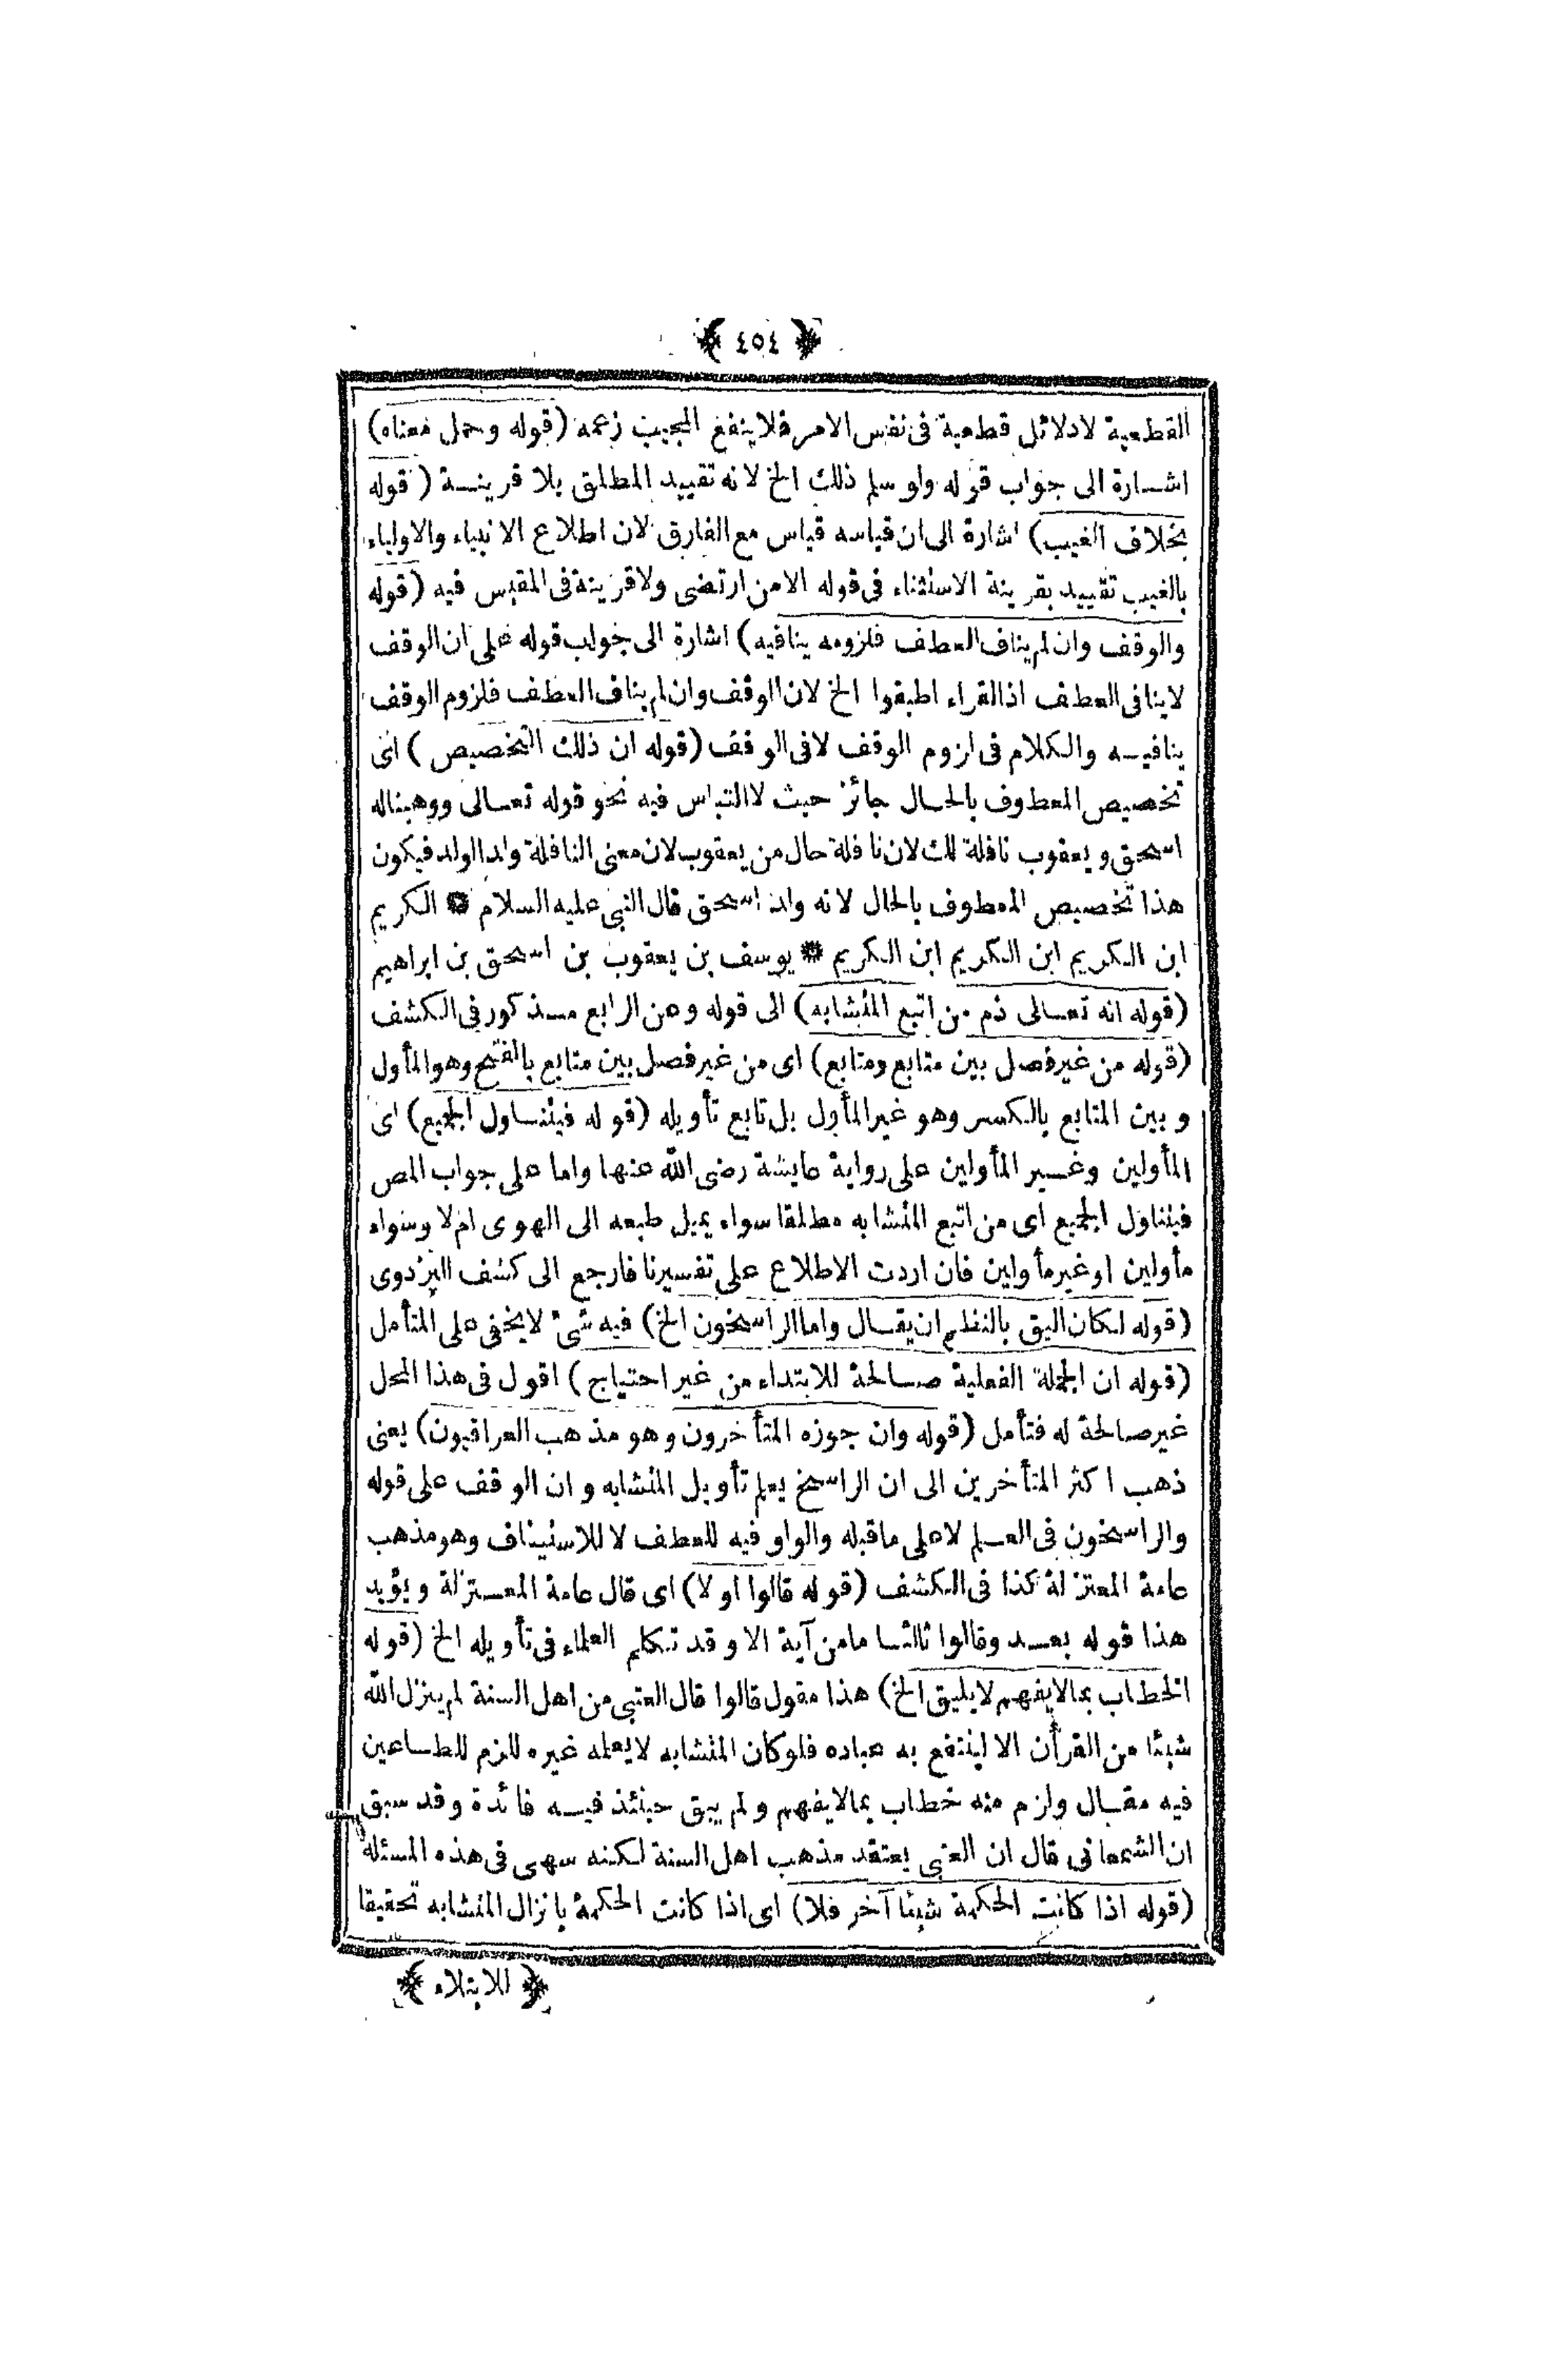 ﴿ ٤٥٤ ﴾
القطعية لادلائل قطعية فى نفس الامر فلا ينفع المجيب زعمه (قوله وحمل معناه)
اشارة الى جواب قوله ولو سلم ذلك الخ لانه تقييد المطلق بلا قرينة (قوله
بخلاف الغيب) اشارة الى ان قياسه قياس مع الفارق لان اطلاع الانبياء والاولياء
بالغيب تقييد بقرينة الاستثناء فى قوله الا من ارتضى ولا قرينة فى المقيس فيه (قوله
والوقف وان لم يناف العطف فلزومه ينافيه) اشارة الى جواب قوله على ان الوقف
لا ينافى العطف اذ القراء اطبقوا الخ لان الوقف وان لم يناف العطف فلزوم الوقف
ينافيه والكلام فى لزوم الوقف لا فى الوقف (قوله ان ذلك التخصيص) اى
تخصيص المعطوف بالحال جائز حيث لا التباس فيه نحو قوله تعالى ووهبنا له
اسحق ويعقوب نافلة لك لان نافلة حال من يعقوب لان معنى النافلة ولد الولد فيكون
هذا تخصيص المعطوف بالحال لانه ولد اسحق قال النبى عليه السلام * الكريم
ابن الكريم ابن الكريم ابن الكريم * يوسف بن يعقوب بن اسحق بن ابراهيم
(قوله انه تعالى ذم من اتبع المتشابه) الى قوله وعن الرابع مذكور فى الكشف
(قوله من غير فصل بين متابع ومتابع) اى من غير فصل بين متابع بالفتح وهو المأول
وبين المتابع بالكسر وهو غير المأول بل تابع تأويله (قوله فيتناول الجميع) اى
المأولين وغير المأولين على رواية عايشة رضى الله عنها واما على جواب المص
فيتناول الجميع اى من اتبع المتشابه مطلقا سواء يميل طبعه الى الهوى ام لا وسواء
مأولين او غير مأولين فان اردت الاطلاع على تفسيرنا فارجع الى كشف البزدوى
(قوله لكان اليق بالنظم ان يقال واما الراسخون الخ) فيه شئ لا يخفى على المتأمل
(قوله ان الجملة الفعلية صالحة للابتداء من غير احتياج) اقول فى هذا المحل
غير صالحة له فتأمل (قوله وان جوزه المتأخرون وهو مذهب العراقيون) يعنى
ذهب اكثر المتأخرين الى ان الراسخ يعلم تأويل المتشابه وان الوقف على قوله
والراسخون فى العلم لا على ماقبله والواو فيه للعطف لا للاستيناف وهو مذهب
عامة المعتزلة كذا فى الكشف (قوله قالوا اولا) اى قال عامة المعتزلة ويؤيد
هذا قوله بعد وقالوا ثالثا مامن آية الا وقد تكلم العلماء فى تأويله الخ (قوله
الخطاب بما لا يفهم لا يليق الخ) هذا مقول قالوا قال العتبى من اهل السنة لم ينزل الله
شيئا من القرأن الا لينتفع به عباده فلوكان المتشابه لا يعلمه غيره للزم للطاعين
فيه مقال ولزم منه خطاب بما لا يفهم ولم يبق حينئذ فيه فائدة وقد سبق
ان السمعانى قال ان العتبى يعتقد مذهب اهل السنة لكنه سهى فى هذه المسئلة
(قوله اذا كانت الحكمة شيئا آخر فلا) اى اذا كانت الحكمة بانزال المتشابه تحقيقا
﴿ للابتلاء ﴾